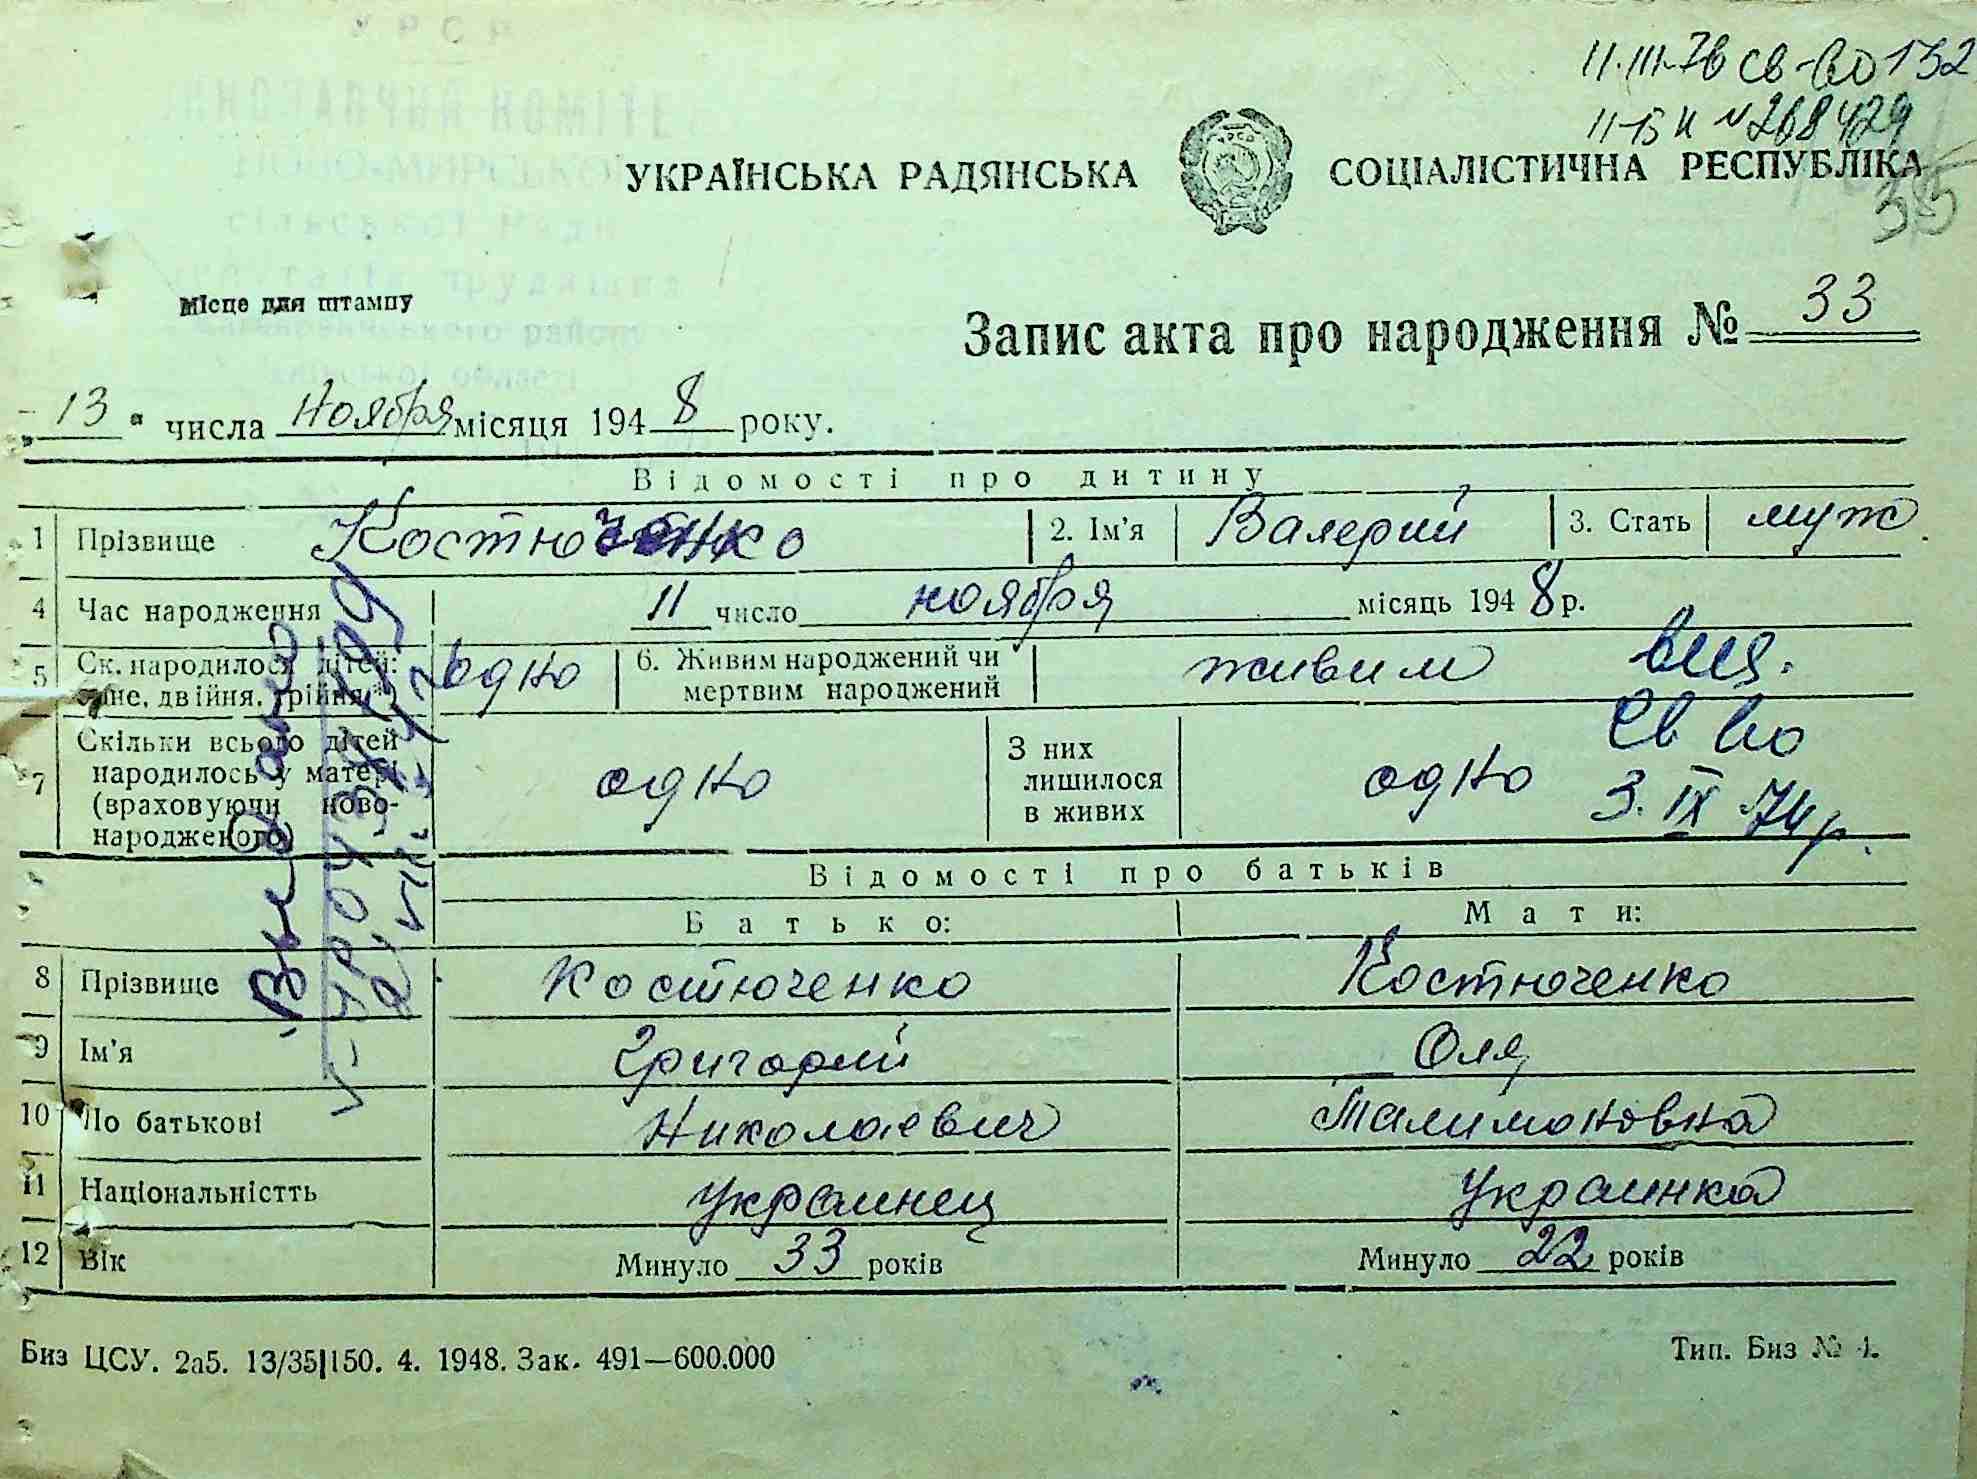 11.III-76 св-во 132
II-БК № 268429
УКРАЇНСЬКА РАДЯНСЬКА СОЦІАЛІСТИЧНА РЕСПУБЛІКА
35
Місце для штампу
Запис акта про народження № 33
„13" числа Ноября місяця 1948 року.
Відомості про дитину
1 Прізвище Костюченко 2. Ім'я Валерий 3. Стать муж.
4 Час народження 11 число ноября місяць 1948 р.
5 Ск. народилось дітей: одно 6. Живим народжений чи живим вид.
двійня, трійня*) мертвим народжений
св во
7 Скільки всього дітей народилось у матері (враховуючи ново-народженого) одно З них лишилося в живих одно 3.IX-74 р.
Відомості про батьків
Батько: Мати:
8 Прізвище Костюченко Костюченко
9 Ім'я Григорий Оля
10 По батькові Николаевич Талимоновна
11 Національністть Украинец Украинка
12 Вік Минуло 33 років Минуло 22 років
Биз ЦСУ. 2а5. 13/35|150. 4. 1948. Зак. 491—600.000 Тип. Биз № 4.